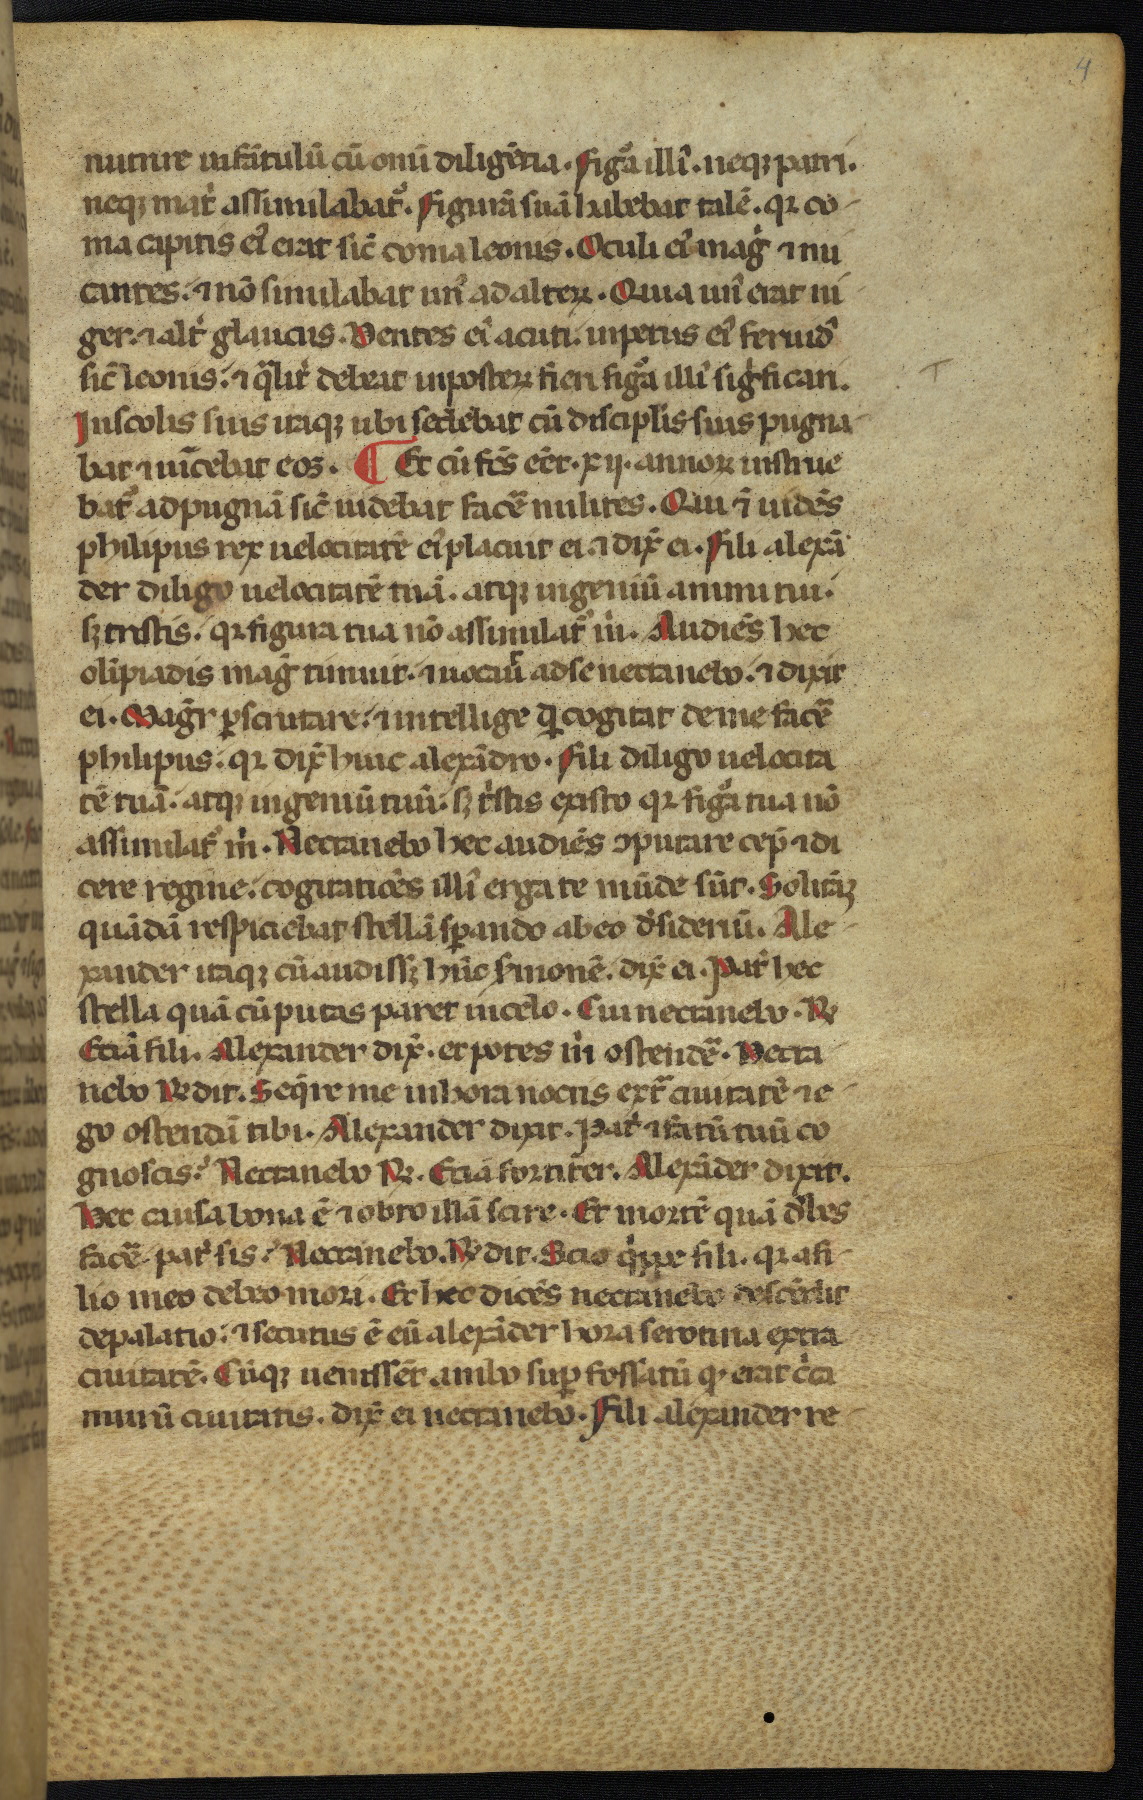 4
nutrire infātulū cū om̄i diligētia. Figᵃa illiꝰ. neqꝫ patri.
neqꝫ mat͛ assimilabat᷑. Figurā suā habebat talē. qꝛ co-
ma capitis eiꝰ erat sic̄ coma leonis. Oculi eiꝰ maḡ ⁊ mi
cantes. ⁊ nō similabat unꝰ ad alterꝝ. Quia unꝰ erat ni
ger. ⁊ alt͛ glaucus. Dentes eiꝰ acuti. inpetus eiꝰ feruidꝰ
sic̄ leonis. ⁊ qᵃlit͛ debeat inposterꝝ fieri figᵃa illiꝰ sigͥficari.
In scolis suis itaqꝫ ubi sedebat cū discipl̄is suis pugna-
bat ⁊ uīcebat eos. ¶ Et cū fc̄s eēt. xij. annorꝝ instrue
bat᷑ ad pugnā sic̄ uidebat facēͤ milites. Qui ⁊ uidēs
philipus rex uelocitatē eiꝰ placuit ei. ⁊ dix̄ ei. Fili alexā
der diligo uelocitatē tuā. atqꝫ ingeniū animi tui.
sꝫ tristis. qꝛ figura tua nō assimilat᷑ m̄i. Audiēs hec
olīpiadis maḡ timuit. ⁊ uocauͥ ad se nectanebo. ⁊ dixit
ei. Maḡr ꝑscrutare. ⁊ intellige qͥd cogitat de me facēͤ
philipus. qꝛ dix̄ huic alexādro. Fili diligo uelocita
tē tuā. atqꝫ ingeniū tuū. sꝫ tͥstis existo qꝛ figᵃa tua nō
assimilat᷑ m̄i. Nectanebo hec audiēs ꝯputare cep̄ ⁊ di
cere regine. cogitatiōēs illiꝰ erga te mūde sūt. Solitāqꝫ
quādā respiciebat stellā sꝑando ab eo d͛siderīū. Ale-
xander itaqꝫ cū audissꝫ hūc s͛monē. dix̄ ei. Pat͛ hec
stella quā cūputas paret in celo. Cui nectanebo. ℞
Etiā fili. Alexander dix̄. et potes m̄i ostendēͤ. Necta
nebo ℞dit. Seqͥre me in hora noctis extᵃ ciuitatē ⁊ e-
go ostendā tibi. Alexander dixit. Pat͛ ⁊ fātū tuū co
gnoscis? Nectanebo ℞. Etiā fortiter. Alexāder dixit.
Hec causa bona ē ⁊ obto illā scire. Et mortē quā d͛bes
facēͤ. pat͛ sis? Nectanebo. ℞dit. Scio qͥppe fili. qꝛ a fi-
lio meo debeo mori. Et hec dicēs nectanebo descēdit
de palatio. ⁊ secutus ē eū alexāder hora serotina extra
ciuitatē. Cūqꝫ uenissēt ambo suꝑ fossatū qͦ erat cͥca
murū ciuitatis. dix̄ ei nectanebo. Fili alexander re-